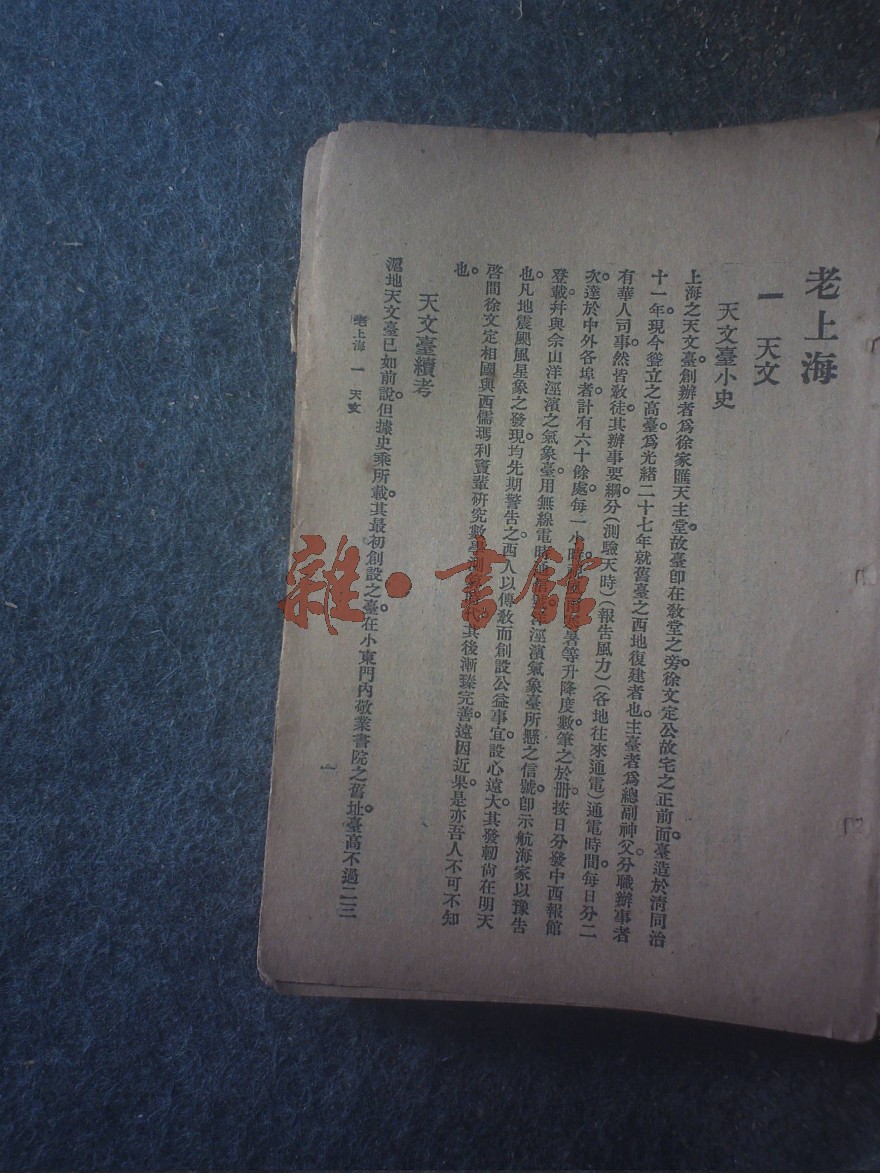 老上海
一 天文
天文臺小史
上海之天文臺。創辦者爲徐家匯天主堂。故臺卽在教堂之旁。徐文定公故宅之正前面。臺造於淸同治
十一年。現今聳立之高臺。爲光緒二十七年就舊臺之西地復建者也。主臺者爲總副神父。分職辦事者
有華人司事。然皆敎徒。其辦事要綱分(測驗天時)(報告風力)(各地往來通電)通電時間。每日分二
次。達於中外各埠者。計有六十餘處。每一小時 暑等升降度數。筆之於册。按日分發中西報館
登載。幷與佘山洋涇濱之氣象臺。用無線電時 洋涇濱氣象臺所懸之信號。卽示航海家以豫告
也。凡地震颶風星象之發現。均先期警告之。西人以傳敎而創設公益事宜。設心遠大。其發軔尙在明天
啓間徐文定相國與西儒瑪利竇輩研究數學測 其後漸臻完善。遠因近果。是亦吾人不可不知
也。
天文臺續考
滬地天文臺已如前說。但據史乘所載。其最初創設之臺。在小東門內敬業書院之舊址。臺高不過二三
老上海 一 天文
一
雜·書館